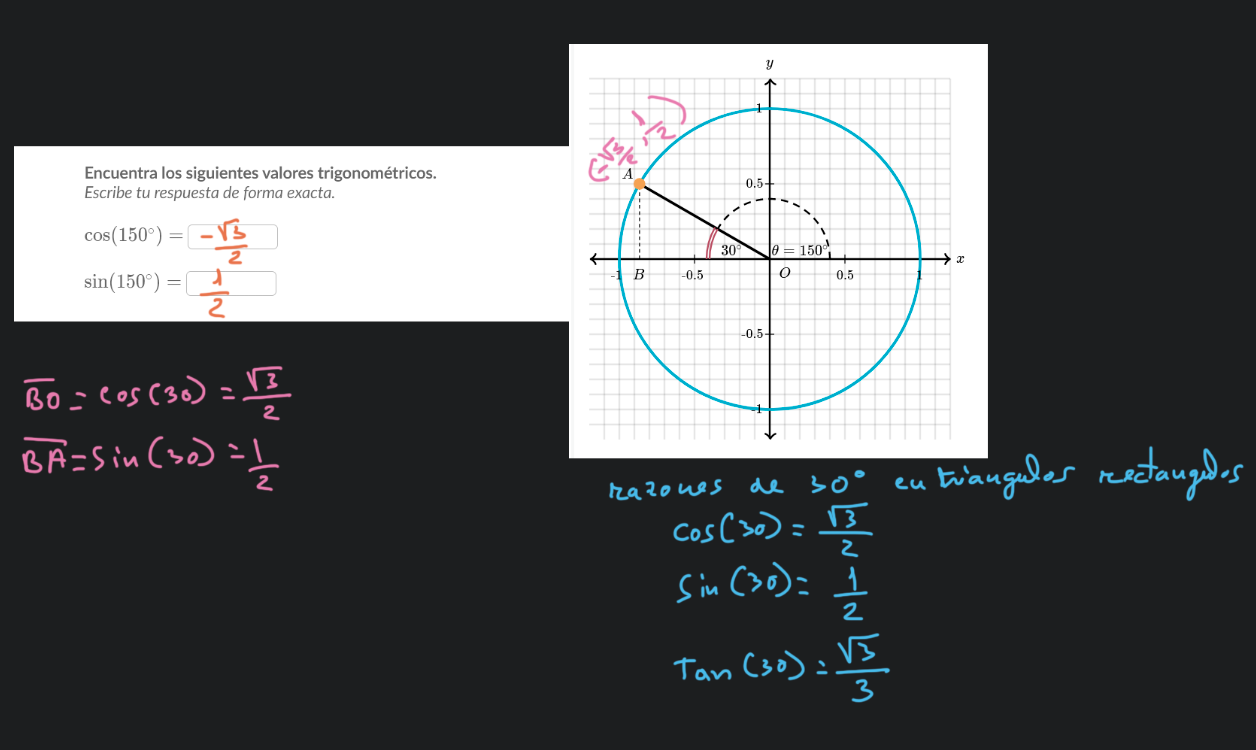 Encuentra los siguientes valores trigonométricos.
Escribe tu respuesta de forma exacta.
cos(150°) = -√3/2
sin(150°) = 1/2
y
1
(-√3/2, 1/2)
A
0.5
30°
θ = 150°
x
-1
B
-0.5
O
0.5
1
-0.5
-1
BO = cos(30) = √3/2
BA = sin(30) = 1/2
razones de 30° en triángulos rectangulos
cos(30) = √3/2
sin(30) = 1/2
Tan(30) = √3/3